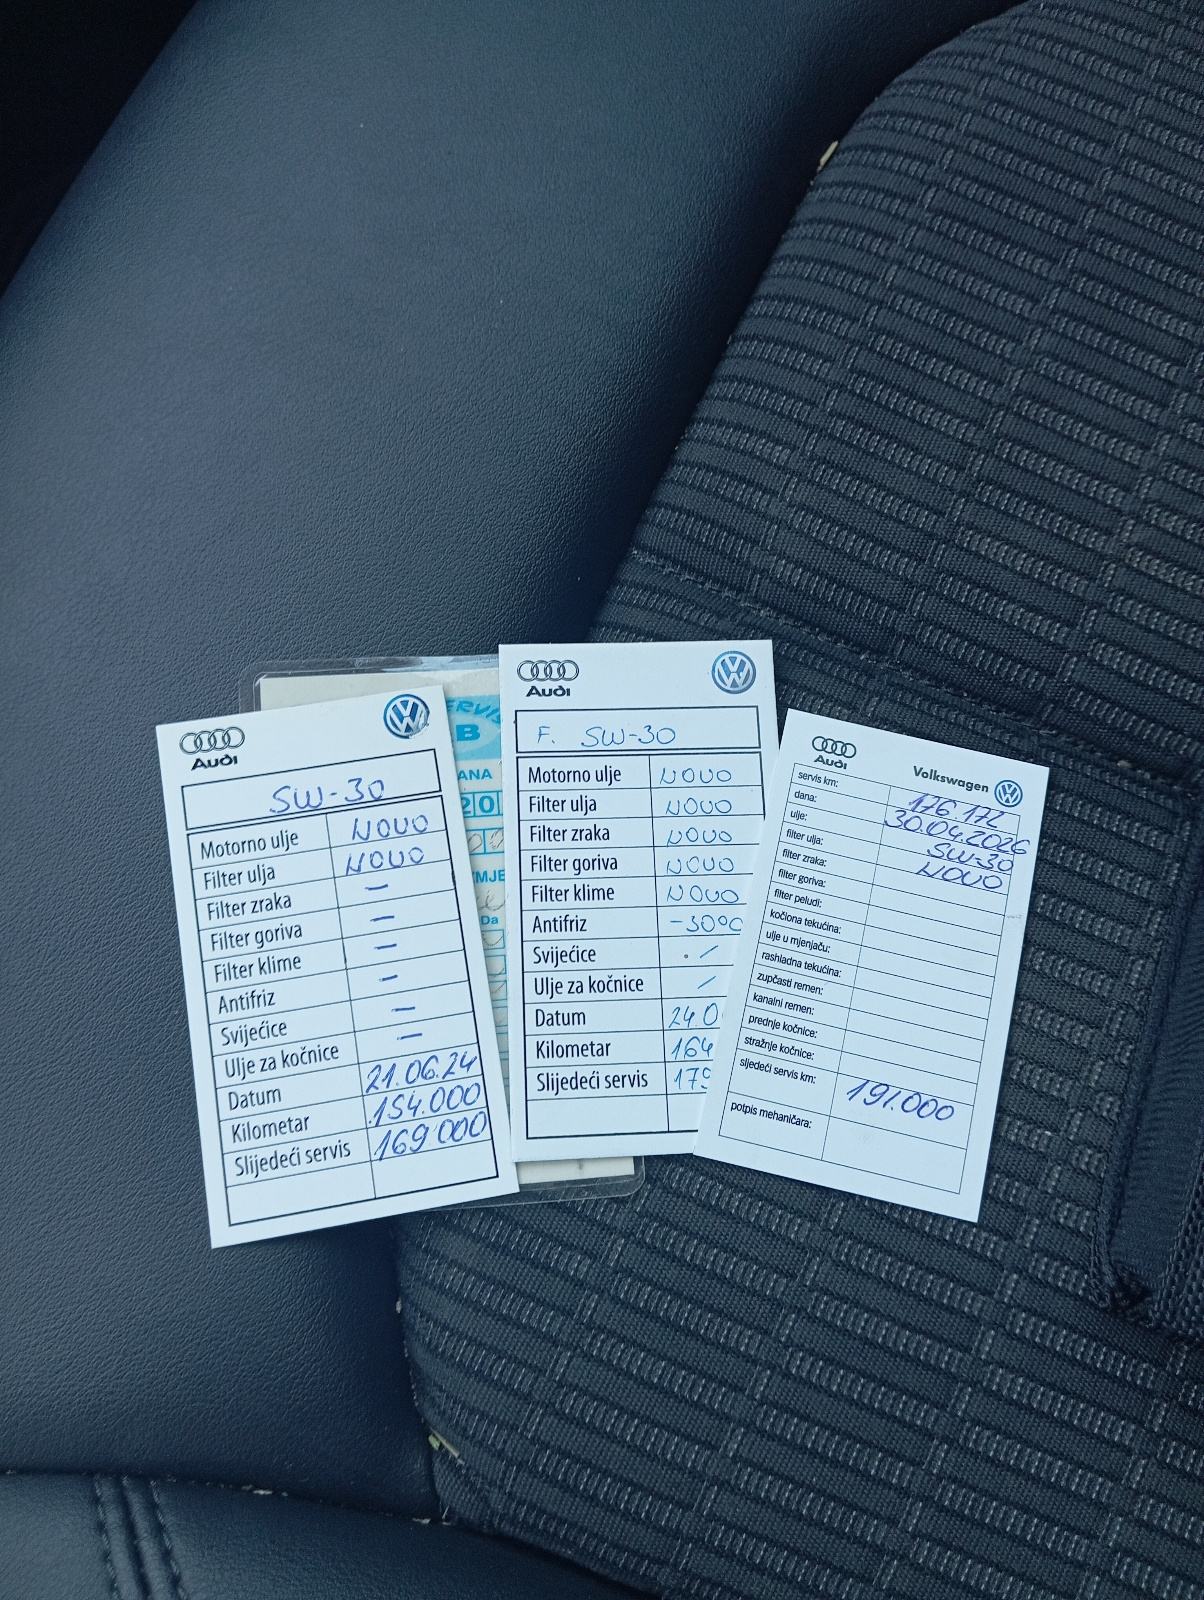 Audi
SW-30
Motorno ulje NOVO
Filter ulja NOVO
Filter zraka –
Filter goriva –
Filter klime –
Antifriz –
Svijećice –
Ulje za kočnice –
Datum 21.06.24
Kilometar 154.000
Slijedeći servis 169000
B
20
Da
Audi
F. SW-30
Motorno ulje NOVO
Filter ulja NOVO
Filter zraka NOVO
Filter goriva NOVO
Filter klime NOVO
Antifriz -30°C
Svijećice . /
Ulje za kočnice /
Datum 24.0
Kilometar 164
Slijedeći servis 179
Audi
Volkswagen
servis km: 176.172
dana: 30.04.2026
ulje: SW-30
filter ulja: NOVO
filter zraka:
filter goriva:
filter peludi:
kočiona tekućina:
ulje u mjenjaču:
rashladna tekućina:
zupčasti remen:
kanalni remen:
prednje kočnice:
stražnje kočnice:
sljedeći servis km: 191.000
potpis mehaničara: